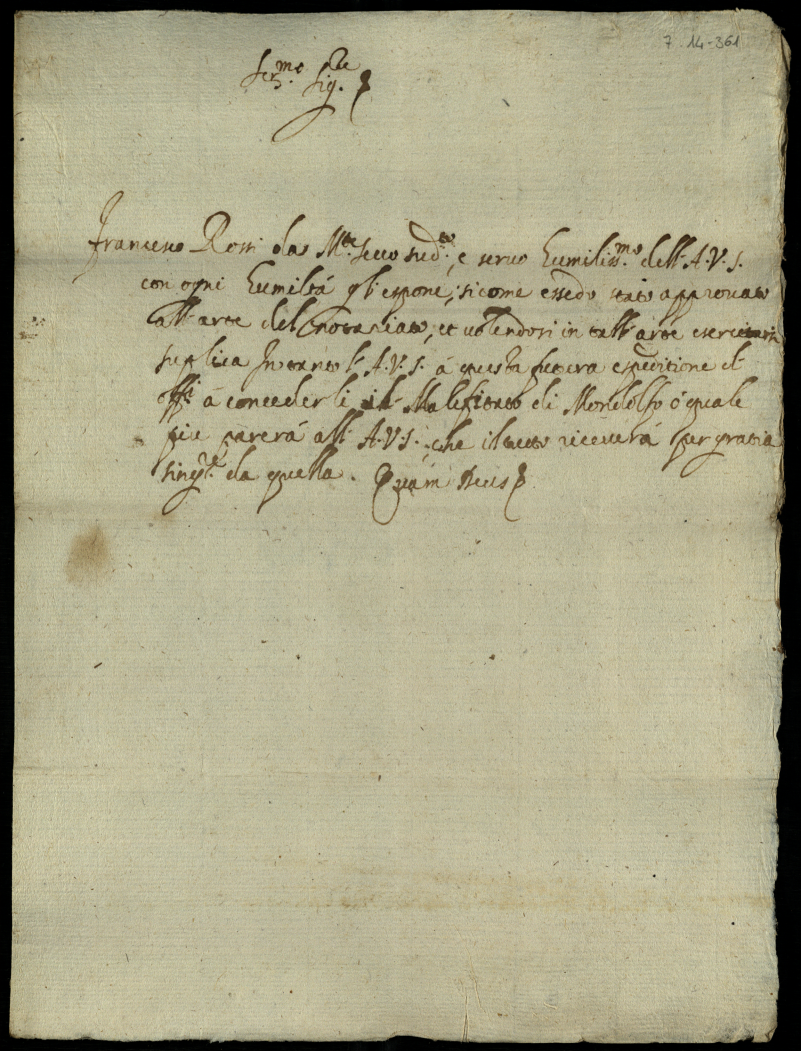 7. 14-361
Ser.mo Sig.re
Francesco Rossi da M.te secco sud.to, e servo humiliss.mo dell'A.V.S.
con ogni humiltà gl'espone, sicome essedo stato approvato
all'arte del Notariato, et volendosi in tall'arte esercitarsi
suplica Intanto l'A.V.S. á questa futura espeditione d'
offi á concederli il Malefitato di Mondolfo ó quale
piu parerá all'A.V.S., che il tutto riceverá per gratia
sing.re da quella. Quam Deus